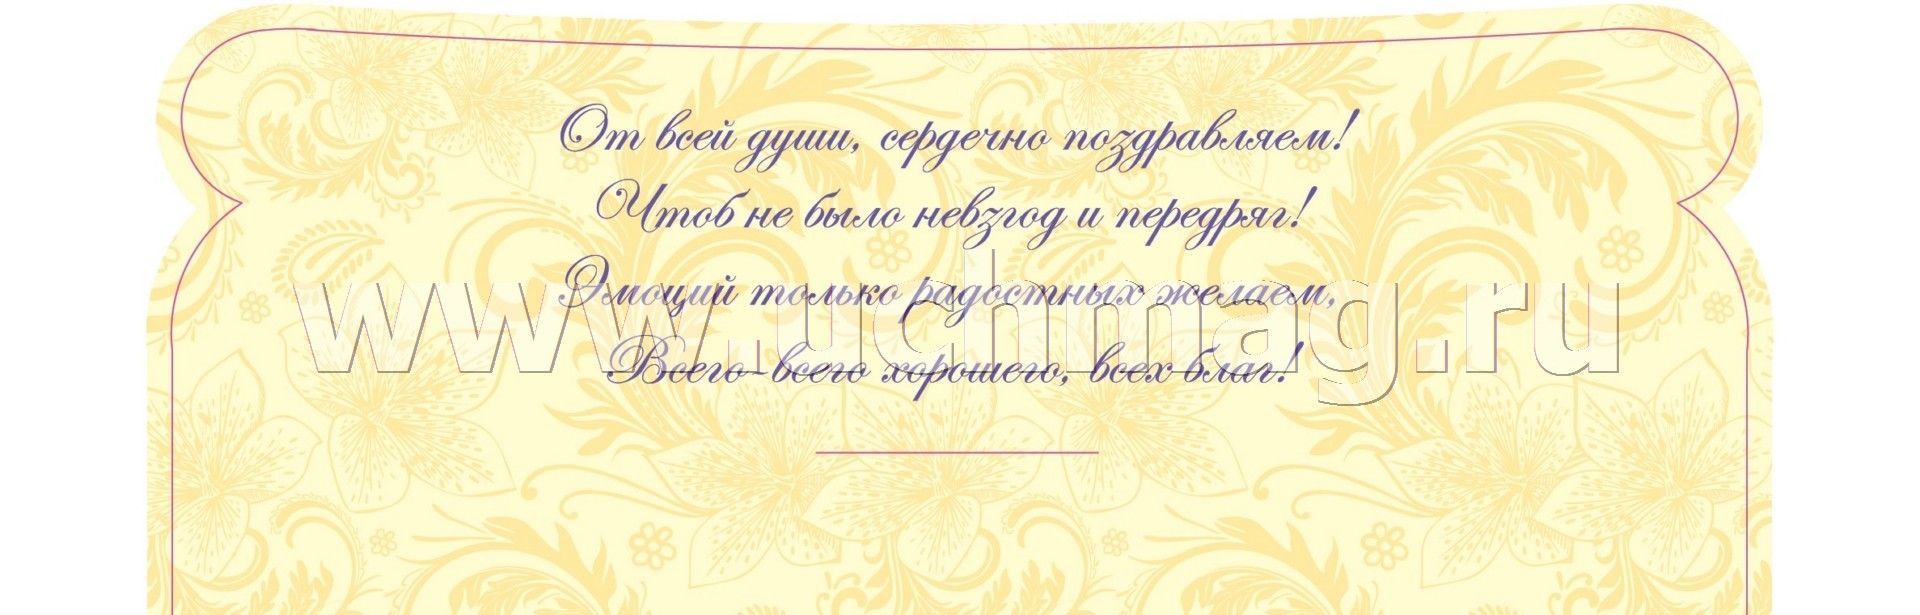 От всей души, сердечно поздравляем!
Чтоб не было невзгод и передряг!
Эмоций только радостных желаем,
Всего-всего хорошего, всех благ!
www.uchmag.ru